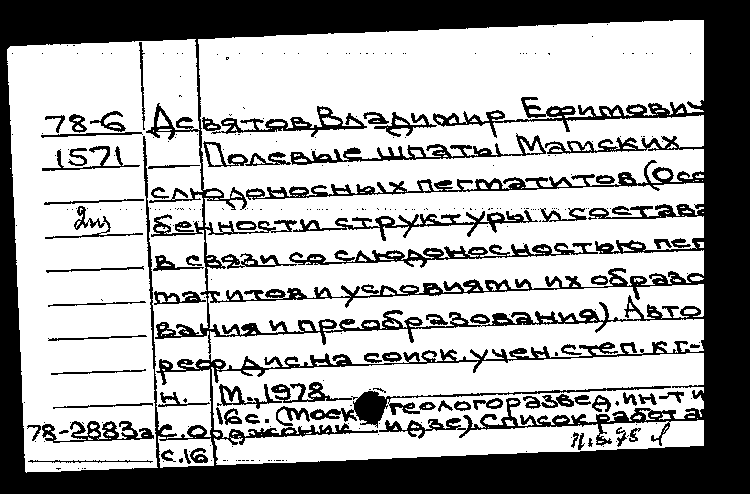 78-6 Девятов, Владимир Ефимович
1571 Полевые шпаты Мамских
слюдоносных пегматитов (Осо
бенности структуры и состава
в связи со слюдоносностью пег
матитов и условиями их образо
вания и преобразования). Авто
реф. дис. на соиск. учен. степ. к.г.-
н. М., 1978.
16 с. (Моск геологоразвед. ин-т и
78-2883а с. О джоник идзе). Список работ ав
с. 16